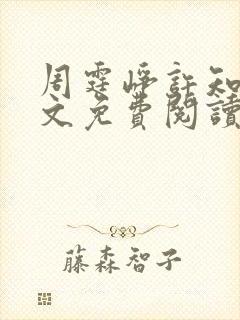 周霆崢許知
文免費閱讀
藤森智子